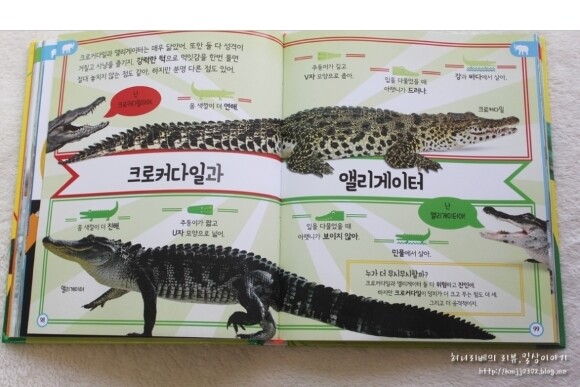 크로커다일과 앨리게이터는 매우 닮았어. 또한 둘 다 성격이
거칠고 사냥을 즐기지. 강력한 턱으로 먹잇감을 한번 물면
절대 놓치지 않는 점도 같아. 하지만 분명 다른 점도 있어.
난
크로커다일이야.
몸 색깔이 더 연해.
주둥이가 길고
V자 모양으로 좁아.
입을 다물었을 때
아랫니가 드러나.
강과 바다에서 살아.
크로커다일
크로커다일과
앨리게이터
몸 색깔이 더 진해.
주둥이가 짧고
U자 모양으로 넓어.
입을 다물었을 때
아랫니가 보이지 않아.
민물에서 살아.
난
앨리게이터야!
앨리게이터
누가 더 무시무시할까?
크로커다일과 앨리게이터 둘 다 위험하고 잔인해.
하지만 크로커다일이 덩치가 더 크고 무는 힘도 더 세.
그리고 더 공격적이지.
98
99
하니티베의 리뷰,일상이야기
http://hmjj2302.blog.me